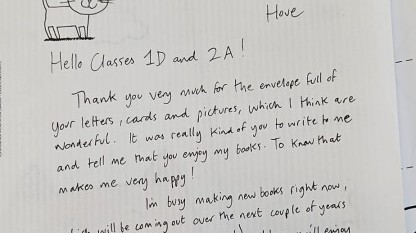 Hove
Hello Classes 1D and 2A!
Thank you very much for the envelope full of
your letters, cards and pictures, which I think are
wonderful. It was really kind of you to write to me
and tell me that you enjoy my books. To know that
makes me very happy!
I'm busy making new books right now,
which will be coming out over the next couple of years
enjoy